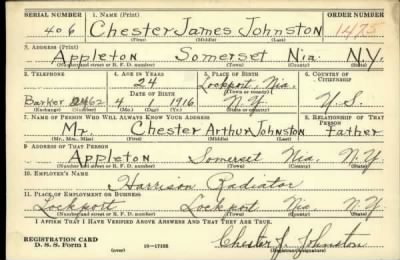 SERIAL NUMBER 1. NAME (Print) ORDER NUMBER
406 Chester James Johnston 1475
(First) (Middle) (Last)
2. ADDRESS (Print)
Appleton Somerset Nia. N.Y.
(Number and street or R. F. D. number) (Town) (County) (State)
3. TELEPHONE 4. AGE IN YEARS 5. PLACE OF BIRTH 6. COUNTRY OF CITIZENSHIP
24 Lockport, Nia.
DATE OF BIRTH (Town or county)
Barker 2462 4 1916 N.Y. U.S.
(Exchange) (Number) (Mo.) (Day) (Yr.) (State or country)
7. NAME OF PERSON WHO WILL ALWAYS KNOW YOUR ADDRESS 8. RELATIONSHIP OF THAT PERSON
Mr. Chester Arthur Johnston father
(Mr., Mrs., Miss) (First) (Middle) (Last)
9. ADDRESS OF THAT PERSON
Appleton Somerset Nia. N.Y.
(Number and street or R. F. D. number) (Town) (County) (State)
10. EMPLOYER'S NAME
Harrison Radiator
11. PLACE OF EMPLOYMENT OR BUSINESS
Lockport Lockport Nia. N.Y.
(Number and street or R. F. D. number) (Town) (County) (State)
I AFFIRM THAT I HAVE VERIFIED ABOVE ANSWERS AND THAT THEY ARE TRUE.
REGISTRATION CARD
D. S. S. Form 1 (over) 16-17105 Chester J. Johnston
(Registrant's signature)